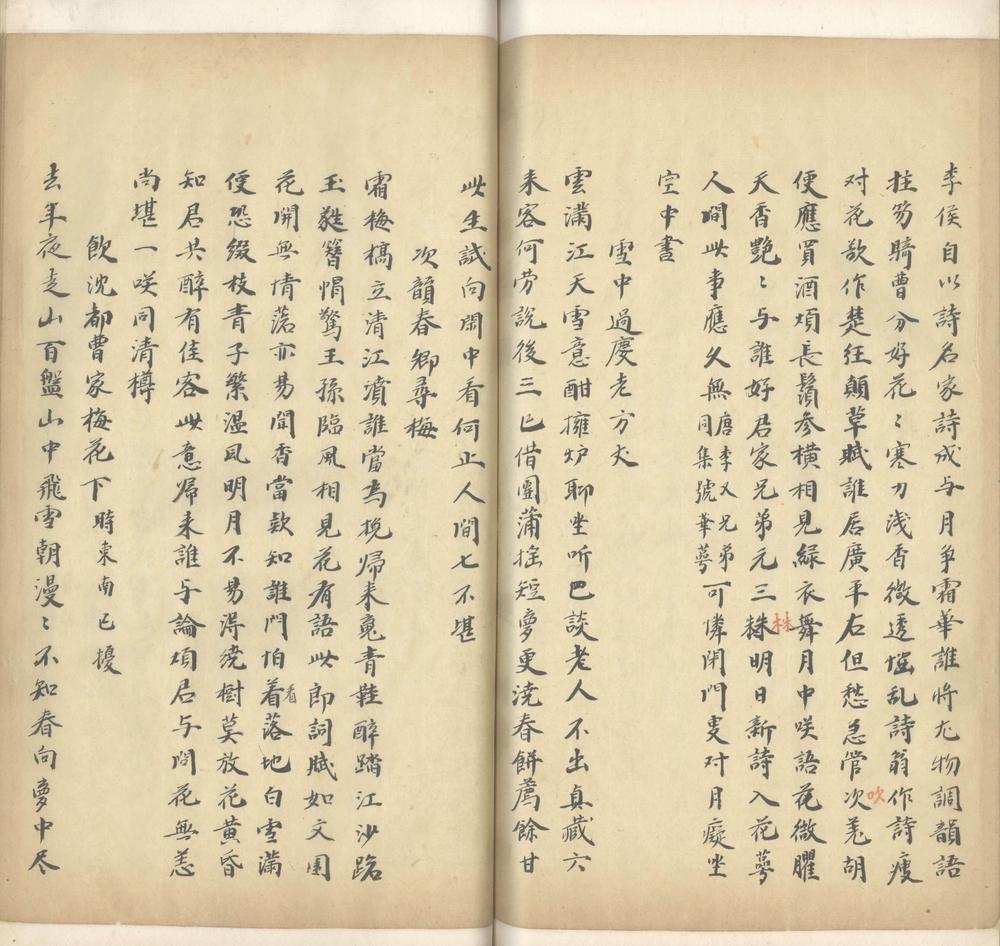 李侯自以詩名家詩成与月争霜華誰將尤物調韻語
拄笏騎曹分好花〻寒力浅香微透惱乱詩翁作詩瘦
对花欲作楚狂顛草賦誰居廣平右但愁急管次羌胡
吹
便應買酒煩長鬚参横相見緑衣舞月中咲語花微臞
天香艷〻与誰好君家兄弟元三株明日新詩入花萼
株
人間此事應久無唐李乂兄弟同集號華萼可憐閉門更对月癡坐
空中書
雪中過慶老方丈
雲满江天雪意酣擁炉聊坐听巴談老人不出真藏六
来客何劳説後三已借團蒲摇短夢更浇春餅薦餘甘
此生試向閑中看何止人間七不堪
次韻春卿尋梅
霜梅槁立清江濆誰當為挽帰来䰟青鞋醉踏江沙路
玉㽔簪帽驚王孫臨風相見花有語此即詞賦如文園
花開無情落亦易聞香當欵知誰門怕着落地白雪满
看
便恐缀枝青子繁温風明月不易淂绕樹莫放花黄昏
知君共醉有佳客此意帰来誰与論煩君与問花無恙
尚堪一咲同清樽
飲沈都曹家梅花下時東南已擾
去年夜走山百盤山中飛雪朝漫〻不知春向夢中尽